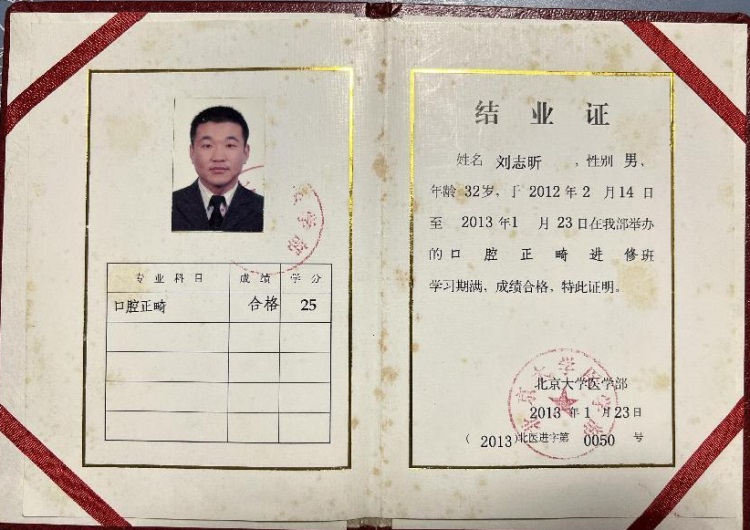 专业科目 成绩 学分
口腔正畸 合格 25
结业证
姓名 刘志昕 ,性别 男,
年龄 32岁, 于 2012年2月14日
至 2013年1月23日在我部举办
的口腔正畸进修班
学习期满, 成绩合格, 特此证明。
北京大学医学部
2013年1月23日
(2013)北医进字第 0050 号
北京大学医学部